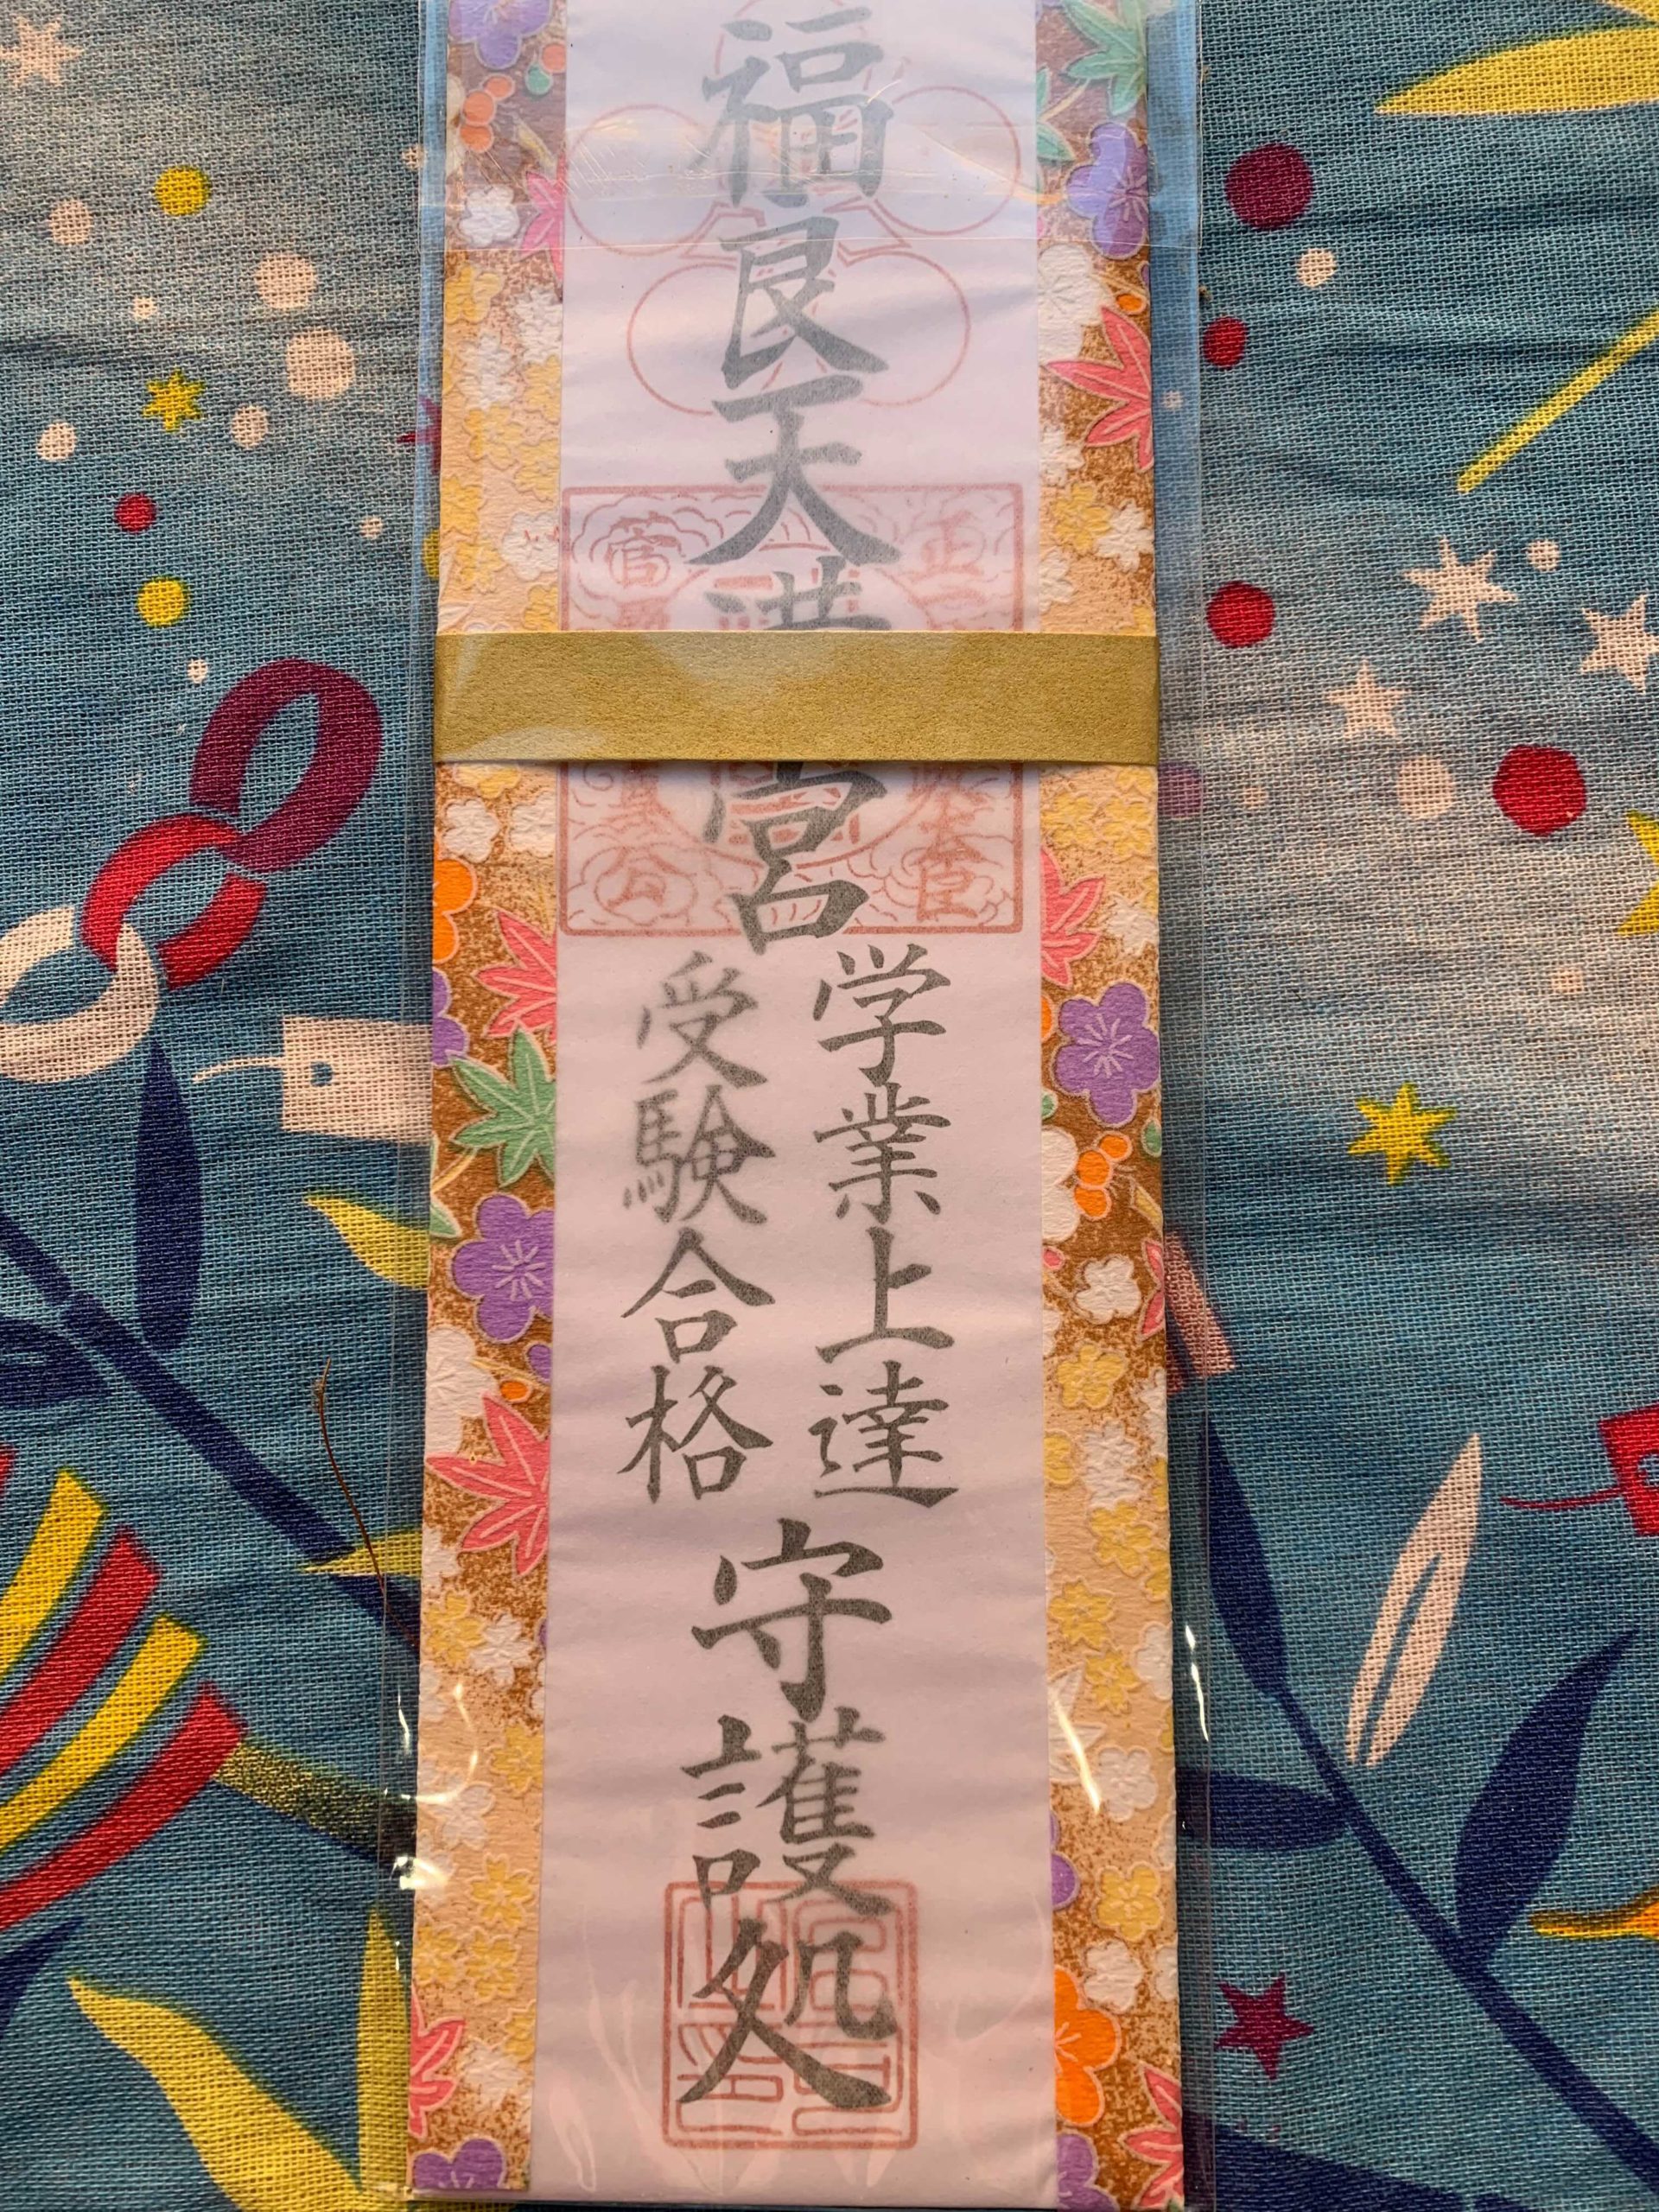 福良天満宮
学業上達
受験合格
守護処